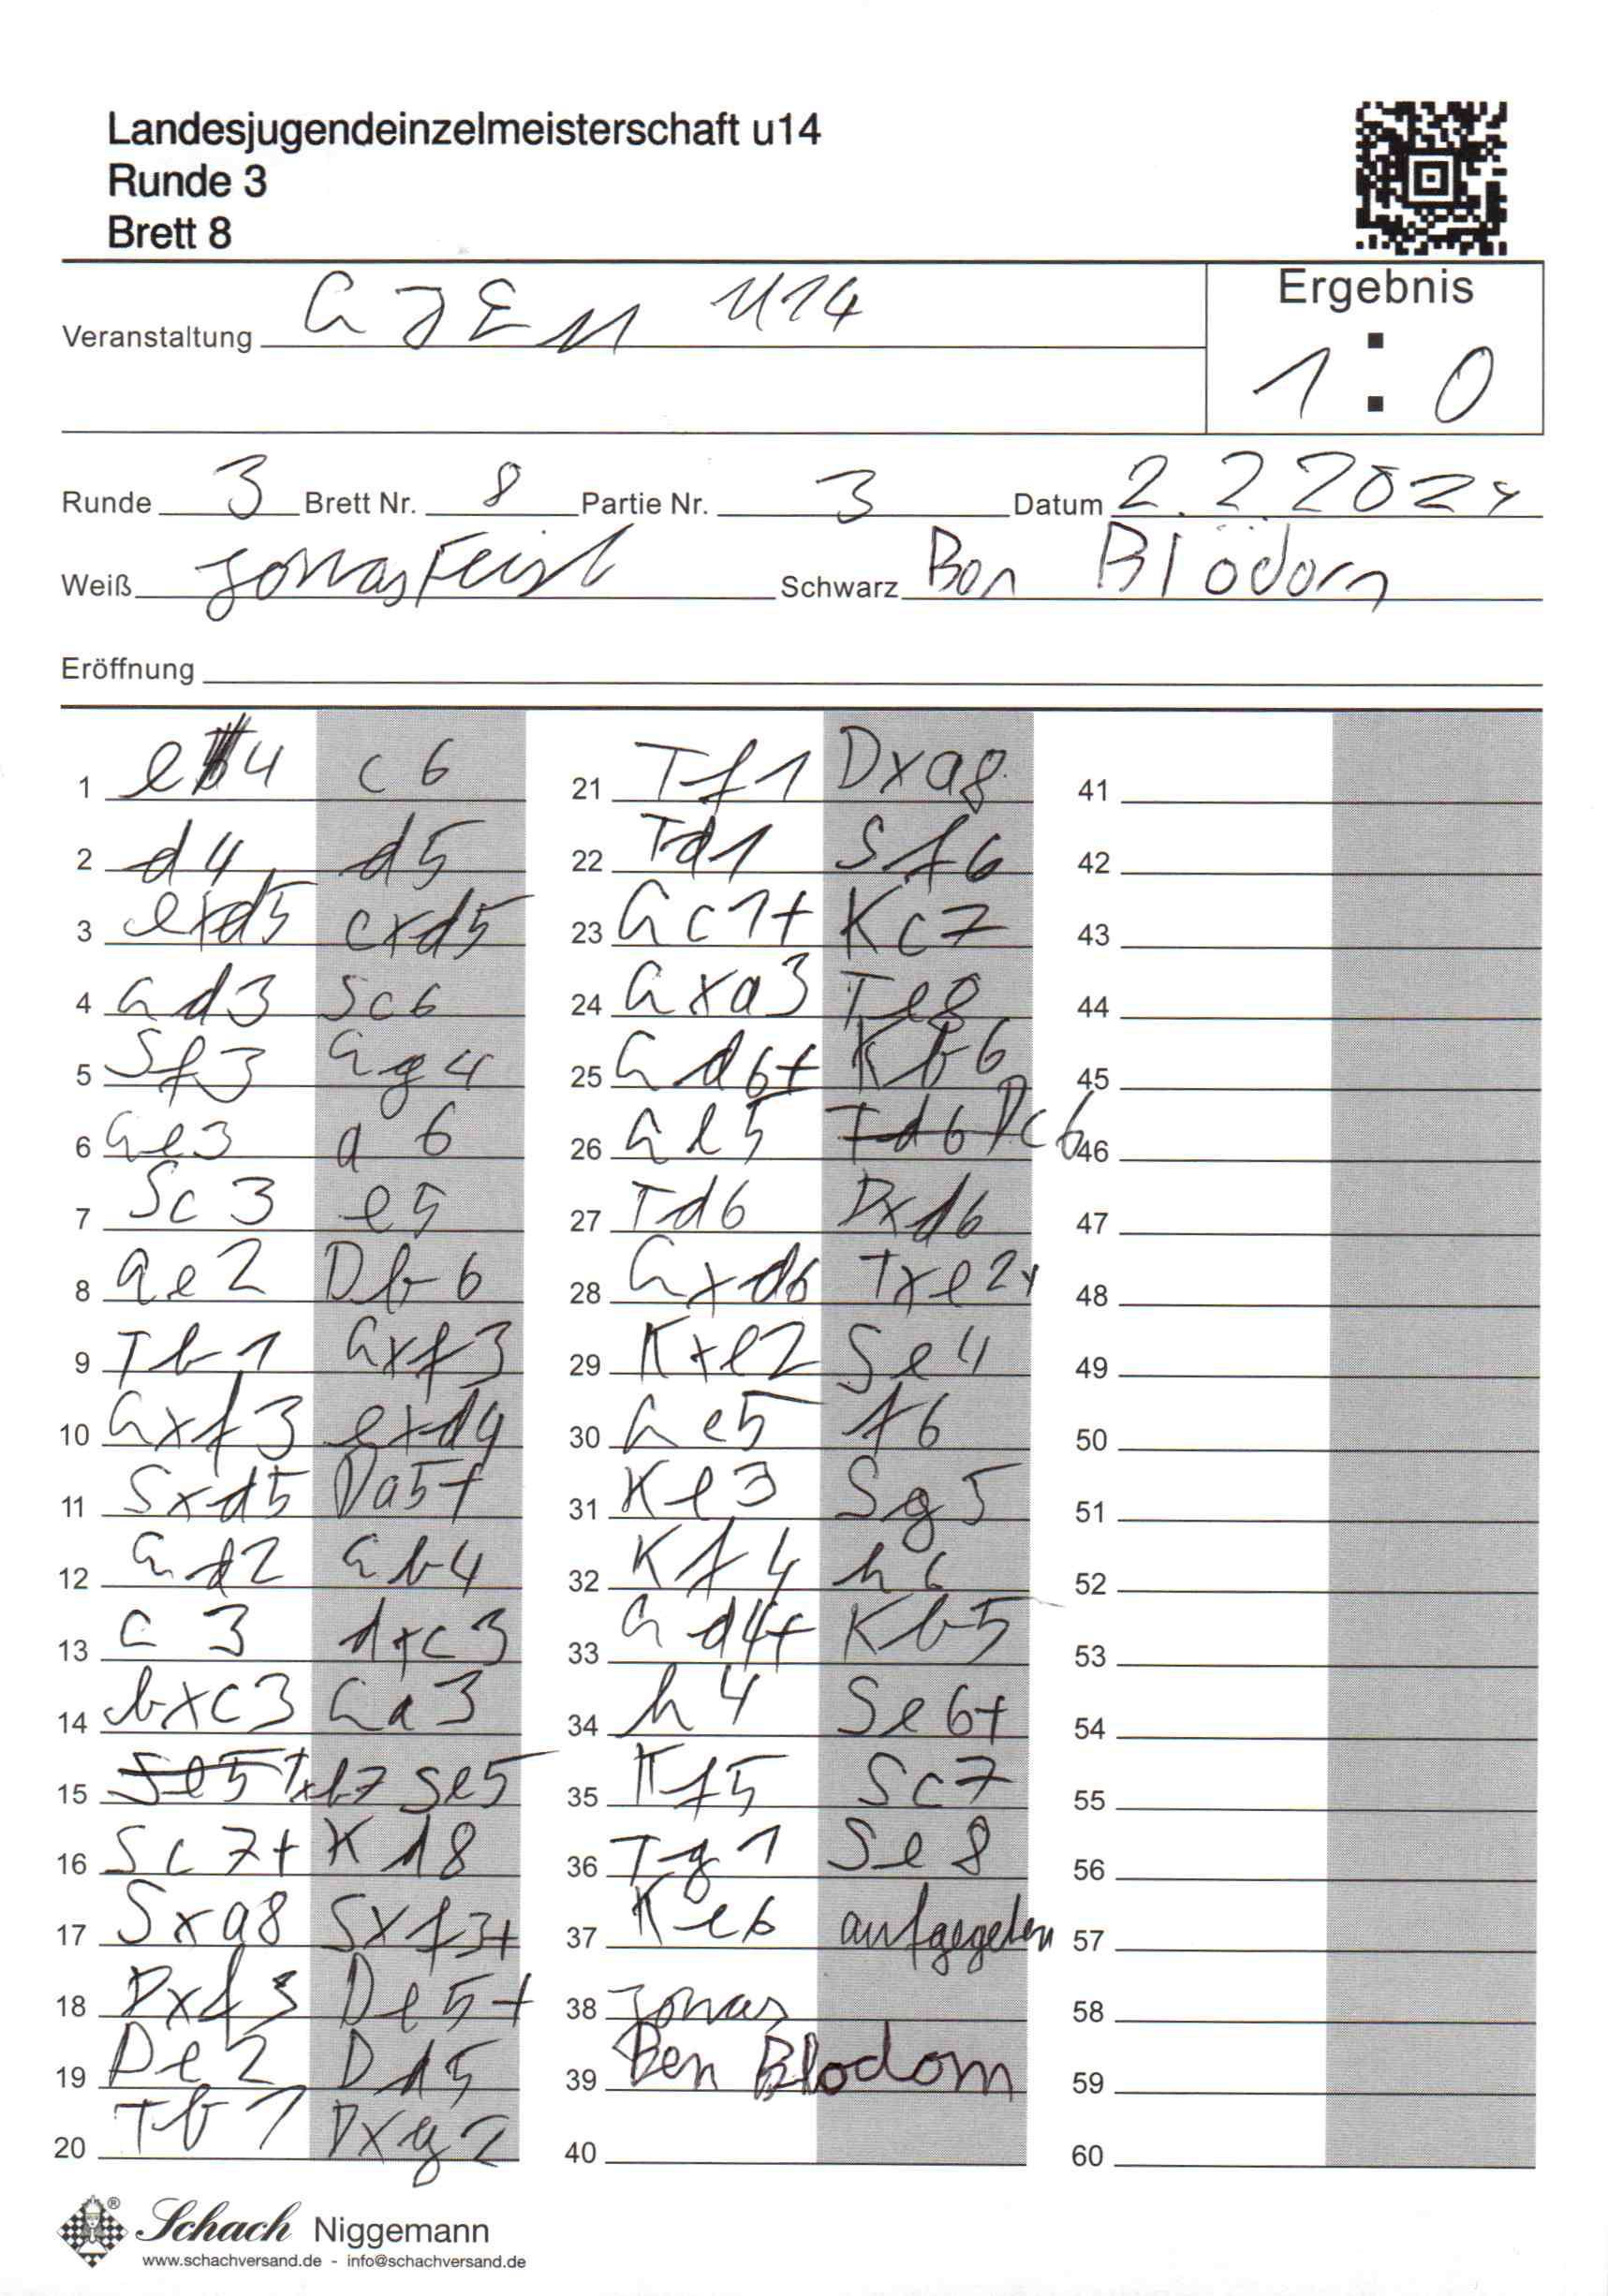 Landesjugendeinzelmeisterschaft u14
Runde 3
Brett 8
Ergebnis
Veranstaltung LJEM U14
1 : 0
Runde 3 Brett Nr. 8 Partie Nr. 3 Datum 2.2.2024
Weiß Jonas Schwarz Ben Blödorn
Eröffnung
1 e4 c6
2 d4 d5
3 exd5 cxd5
4 Ld3 Sc6
5 Sf3 Lg4
6 Le3 a6
7 Sc3 e5
8 Le2 Db6
9 Tb1 Lxf3
10 Lxf3 exd4
11 Sxd5 Da5+
12 Ld2 Lb4
13 c3 dxc3
14 bxc3 La3
15 Se5 Txb7 Se5
16 Sc7+ Kd8
17 Sxa8 Sxf3+
18 Dxf3 De5+
19 De2 Dd5
20 Tb1 Dxg2
21 Tf1 Dxa8
22 Td1 Sf6
23 Lc1+ Kc7
24 Lxa3 Te8
25 Ld6+ Kb6
26 Le5 Td6 Dc6
27 Td6 Dxd6
28 Lxd6 Txe2+
29 Kxe2 Se4
30 Le5 f6
31 Ke3 Sg5
32 Kf4 h6
33 Ld4+ Kb5
34 h4 Se6+
35 Kf5 Sc7
36 Tg1 Se8
37 Ke6 aufgegeben
38 Jonas
39 Ben Blödorn
40
41
42
43
44
45
46
47
48
49
50
51
52
53
54
55
56
57
58
59
60
Schach Niggemann
www.schachversand.de - info@schachversand.de